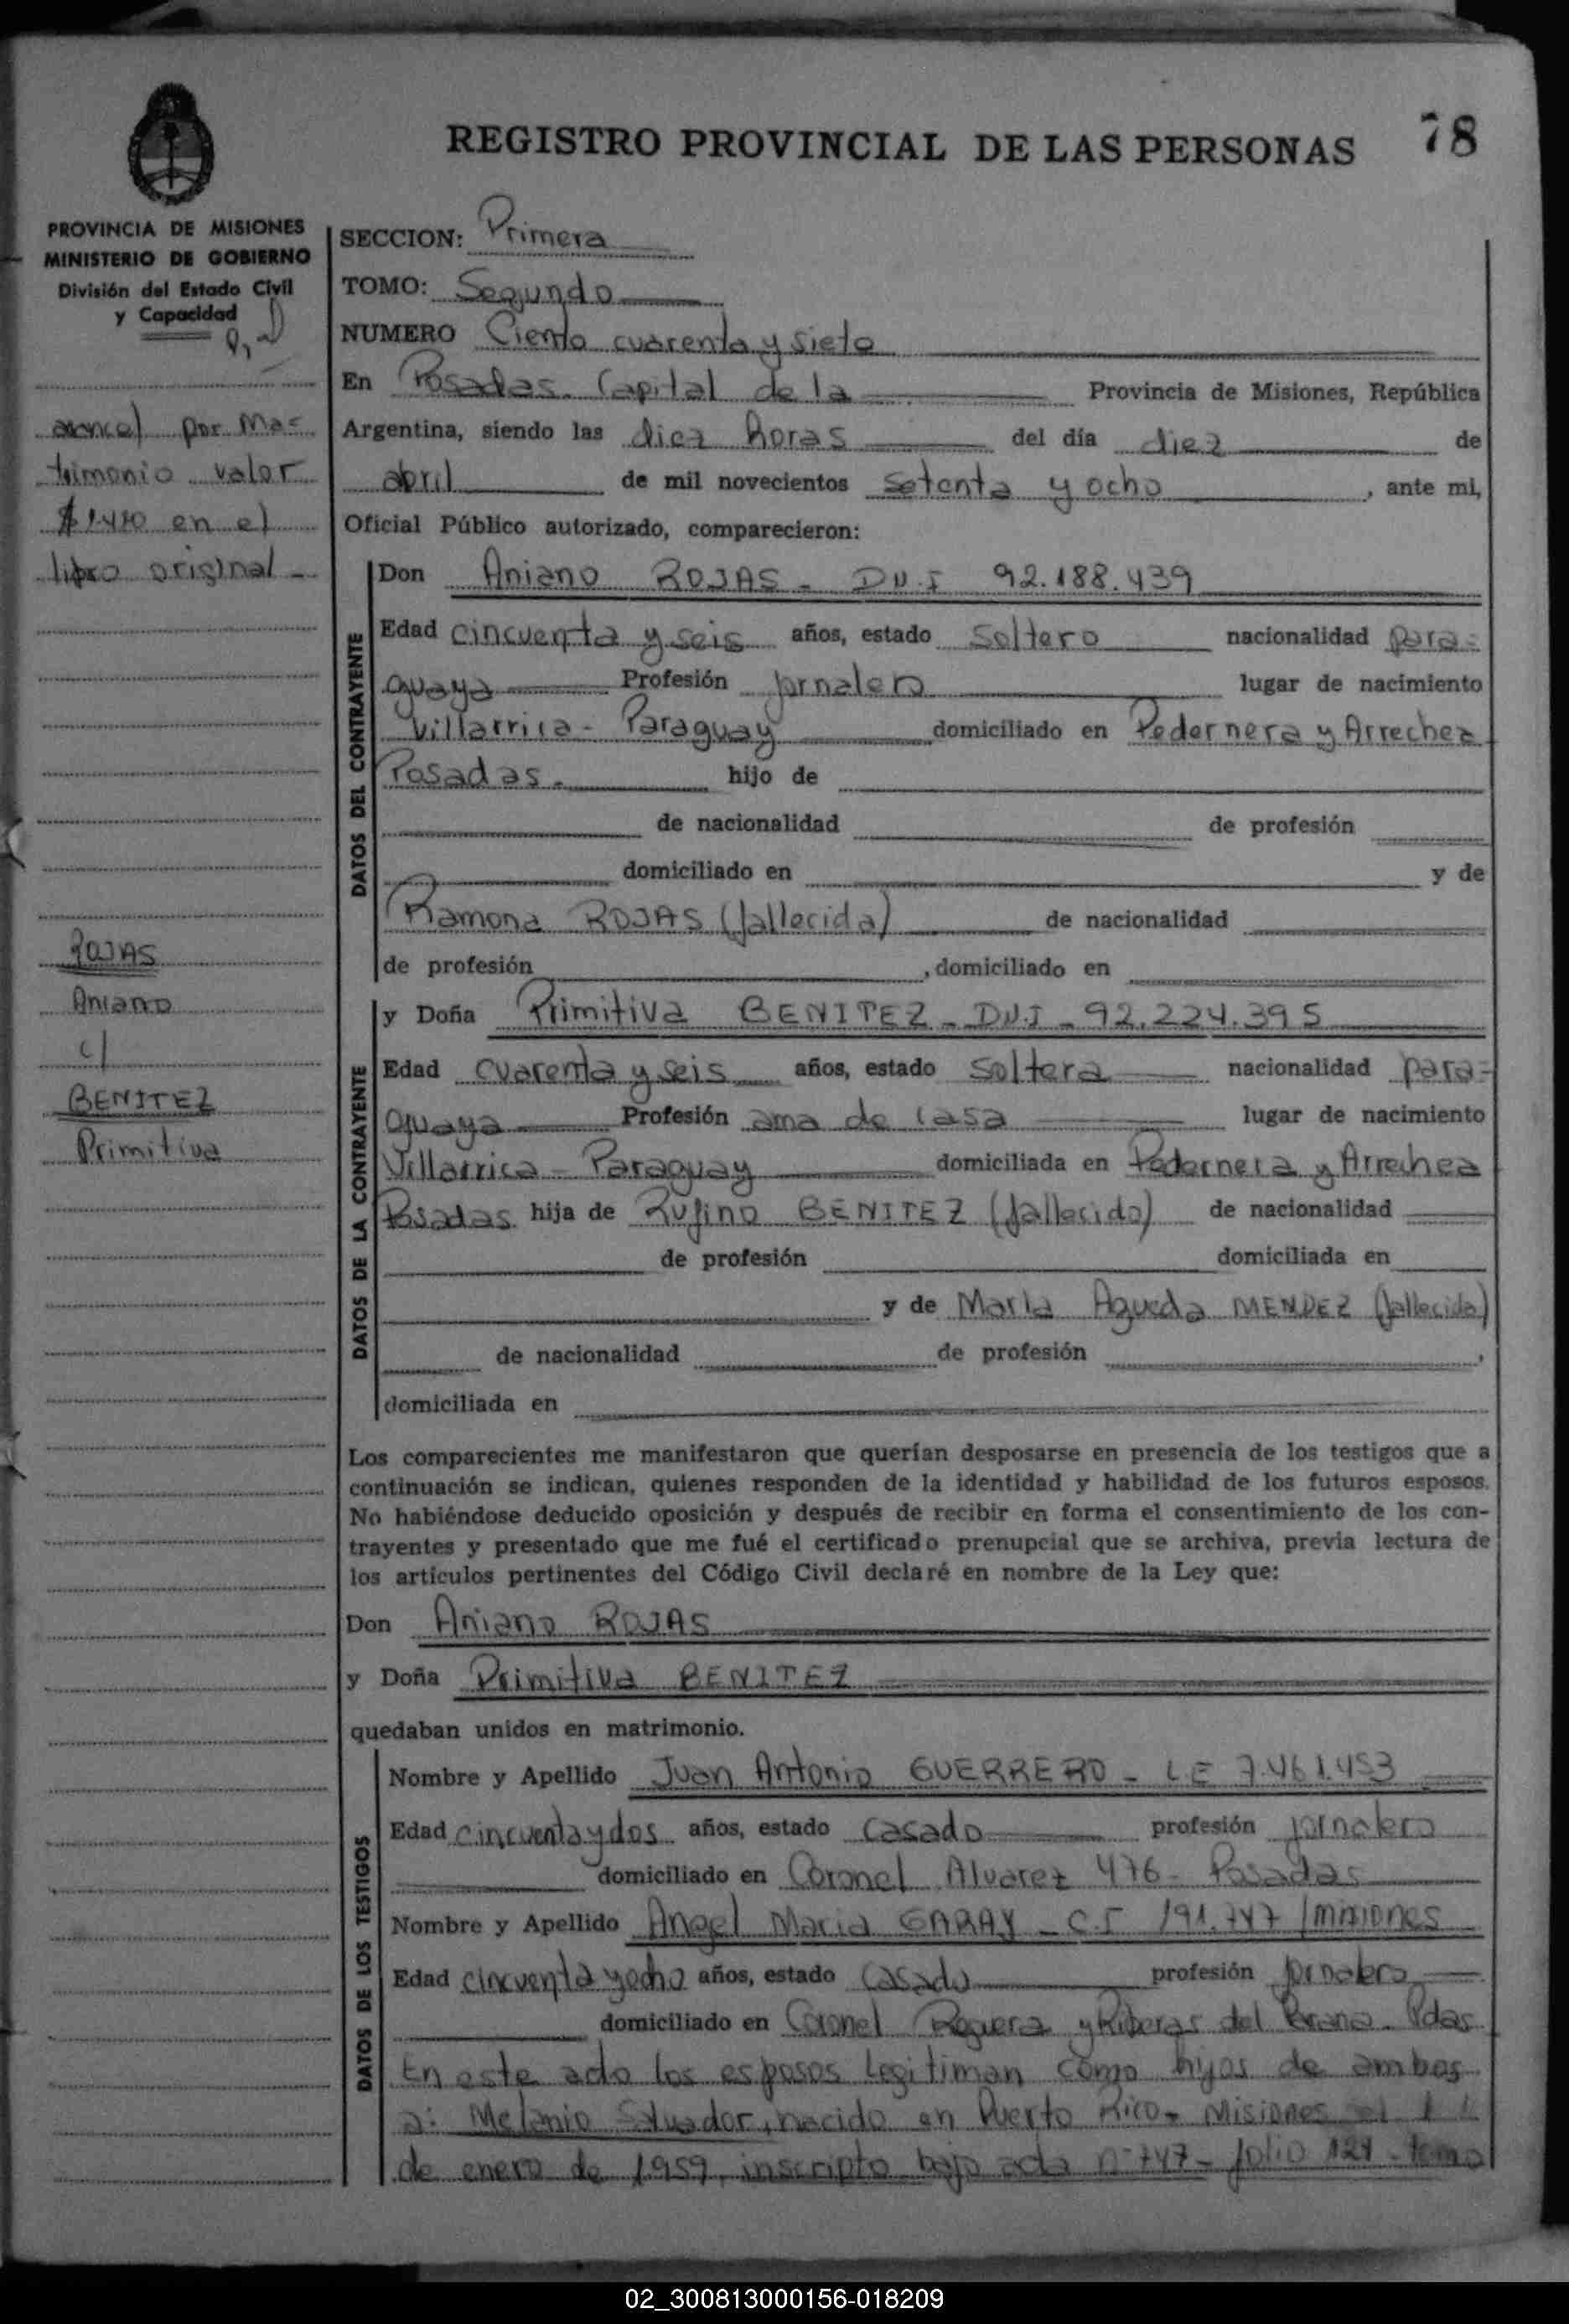 REGISTRO PROVINCIAL DE LAS PERSONAS 78
PROVINCIA DE MISIONES
MINISTERIO DE GOBIERNO
División del Estado Civil
y Capacidad
arancel por Ma=
trimonio valor
en el
libro original -
ROJAS
Aniano
c/
BENITEZ
Primitiva
SECCION: Primera
TOMO: Segundo
NUMERO Ciento cuarenta y siete
En Posadas. Capital de la Provincia de Misiones, República
Argentina, siendo las diez horas del día diez de
abril de mil novecientos setenta y ocho, ante mi,
Oficial Público autorizado, comparecieron:
DATOS DEL CONTRAYENTE
Don Aniano ROJAS - DN.I 92.188.439
Edad cincuenta y seis años, estado soltero nacionalidad para=
guaya Profesión jornalero lugar de nacimiento
Villarrica - Paraguay domiciliado en Pedernera y Arrechea
Posadas. hijo de
de nacionalidad de profesión
domiciliado en y de
Ramona ROJAS (fallecida) de nacionalidad
de profesión , domiciliado en
DATOS DE LA CONTRAYENTE
y Doña Primitiva BENITEZ - DN.I - 92.224.395
Edad cuarenta y seis años, estado soltera nacionalidad para=
guaya Profesión ama de casa lugar de nacimiento
Villarrica - Paraguay domiciliada en Pedernera y Arrechea
Posadas hija de Rufino BENITEZ (fallecido) de nacionalidad
de profesión domiciliada en
y de María Agueda MENDEZ (fallecida)
de nacionalidad de profesión ,
domiciliada en
Los comparecientes me manifestaron que querían desposarse en presencia de los testigos que a
continuación se indican, quienes responden de la identidad y habilidad de los futuros esposos.
No habiéndose deducido oposición y después de recibir en forma el consentimiento de los con-
trayentes y presentado que me fué el certificado prenupcial que se archiva, previa lectura de
los artículos pertinentes del Código Civil declaré en nombre de la Ley que:
Don Aniano ROJAS
y Doña Primitiva BENITEZ
quedaban unidos en matrimonio.
DATOS DE LOS TESTIGOS
Nombre y Apellido Juan Antonio GUERRERO - L.E 7.461.453
Edad cincuenta y dos años, estado casado profesión jornalero
domiciliado en Coronel Alvarez 476 - Posadas
Nombre y Apellido Angel María GARAY - C.I 191.747 /misiones
Edad cincuenta y ocho años, estado casado profesión jornalero
domiciliado en Coronel Reguera y Riberas del Parana - Pdas
En este acto los esposos legitiman como hijos de ambos
a: Melanio Salvador, nacido en Puerto Rico - Misiones el
de enero de 1959, inscripto bajo acta n° 747 - folio 124 - tomo
02_300813000156-018209